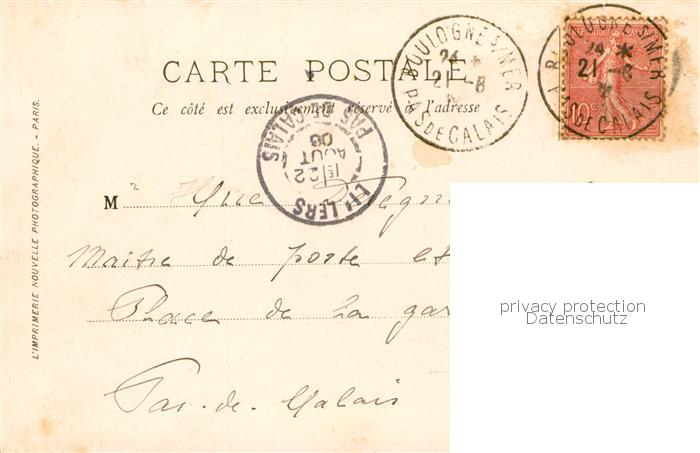 CARTE POSTALE
Ce côté est exclusivement réservé à l'adresse
BOULOGNE S/MER
24 *
21 -8
PAS DE CALAIS
BOULOGNE S/MER
24 *
21 -8
PAS DE CALAIS
10c
LILLERS
22
AOUT
06
PAS DE CALAIS
M
Maitre de poste et
Place de la gar
Pas-de-Calais
L'IMPRIMERIE NOUVELLE PHOTOGRAPHIQUE. - PARIS.
privacy protection
Datenschutz